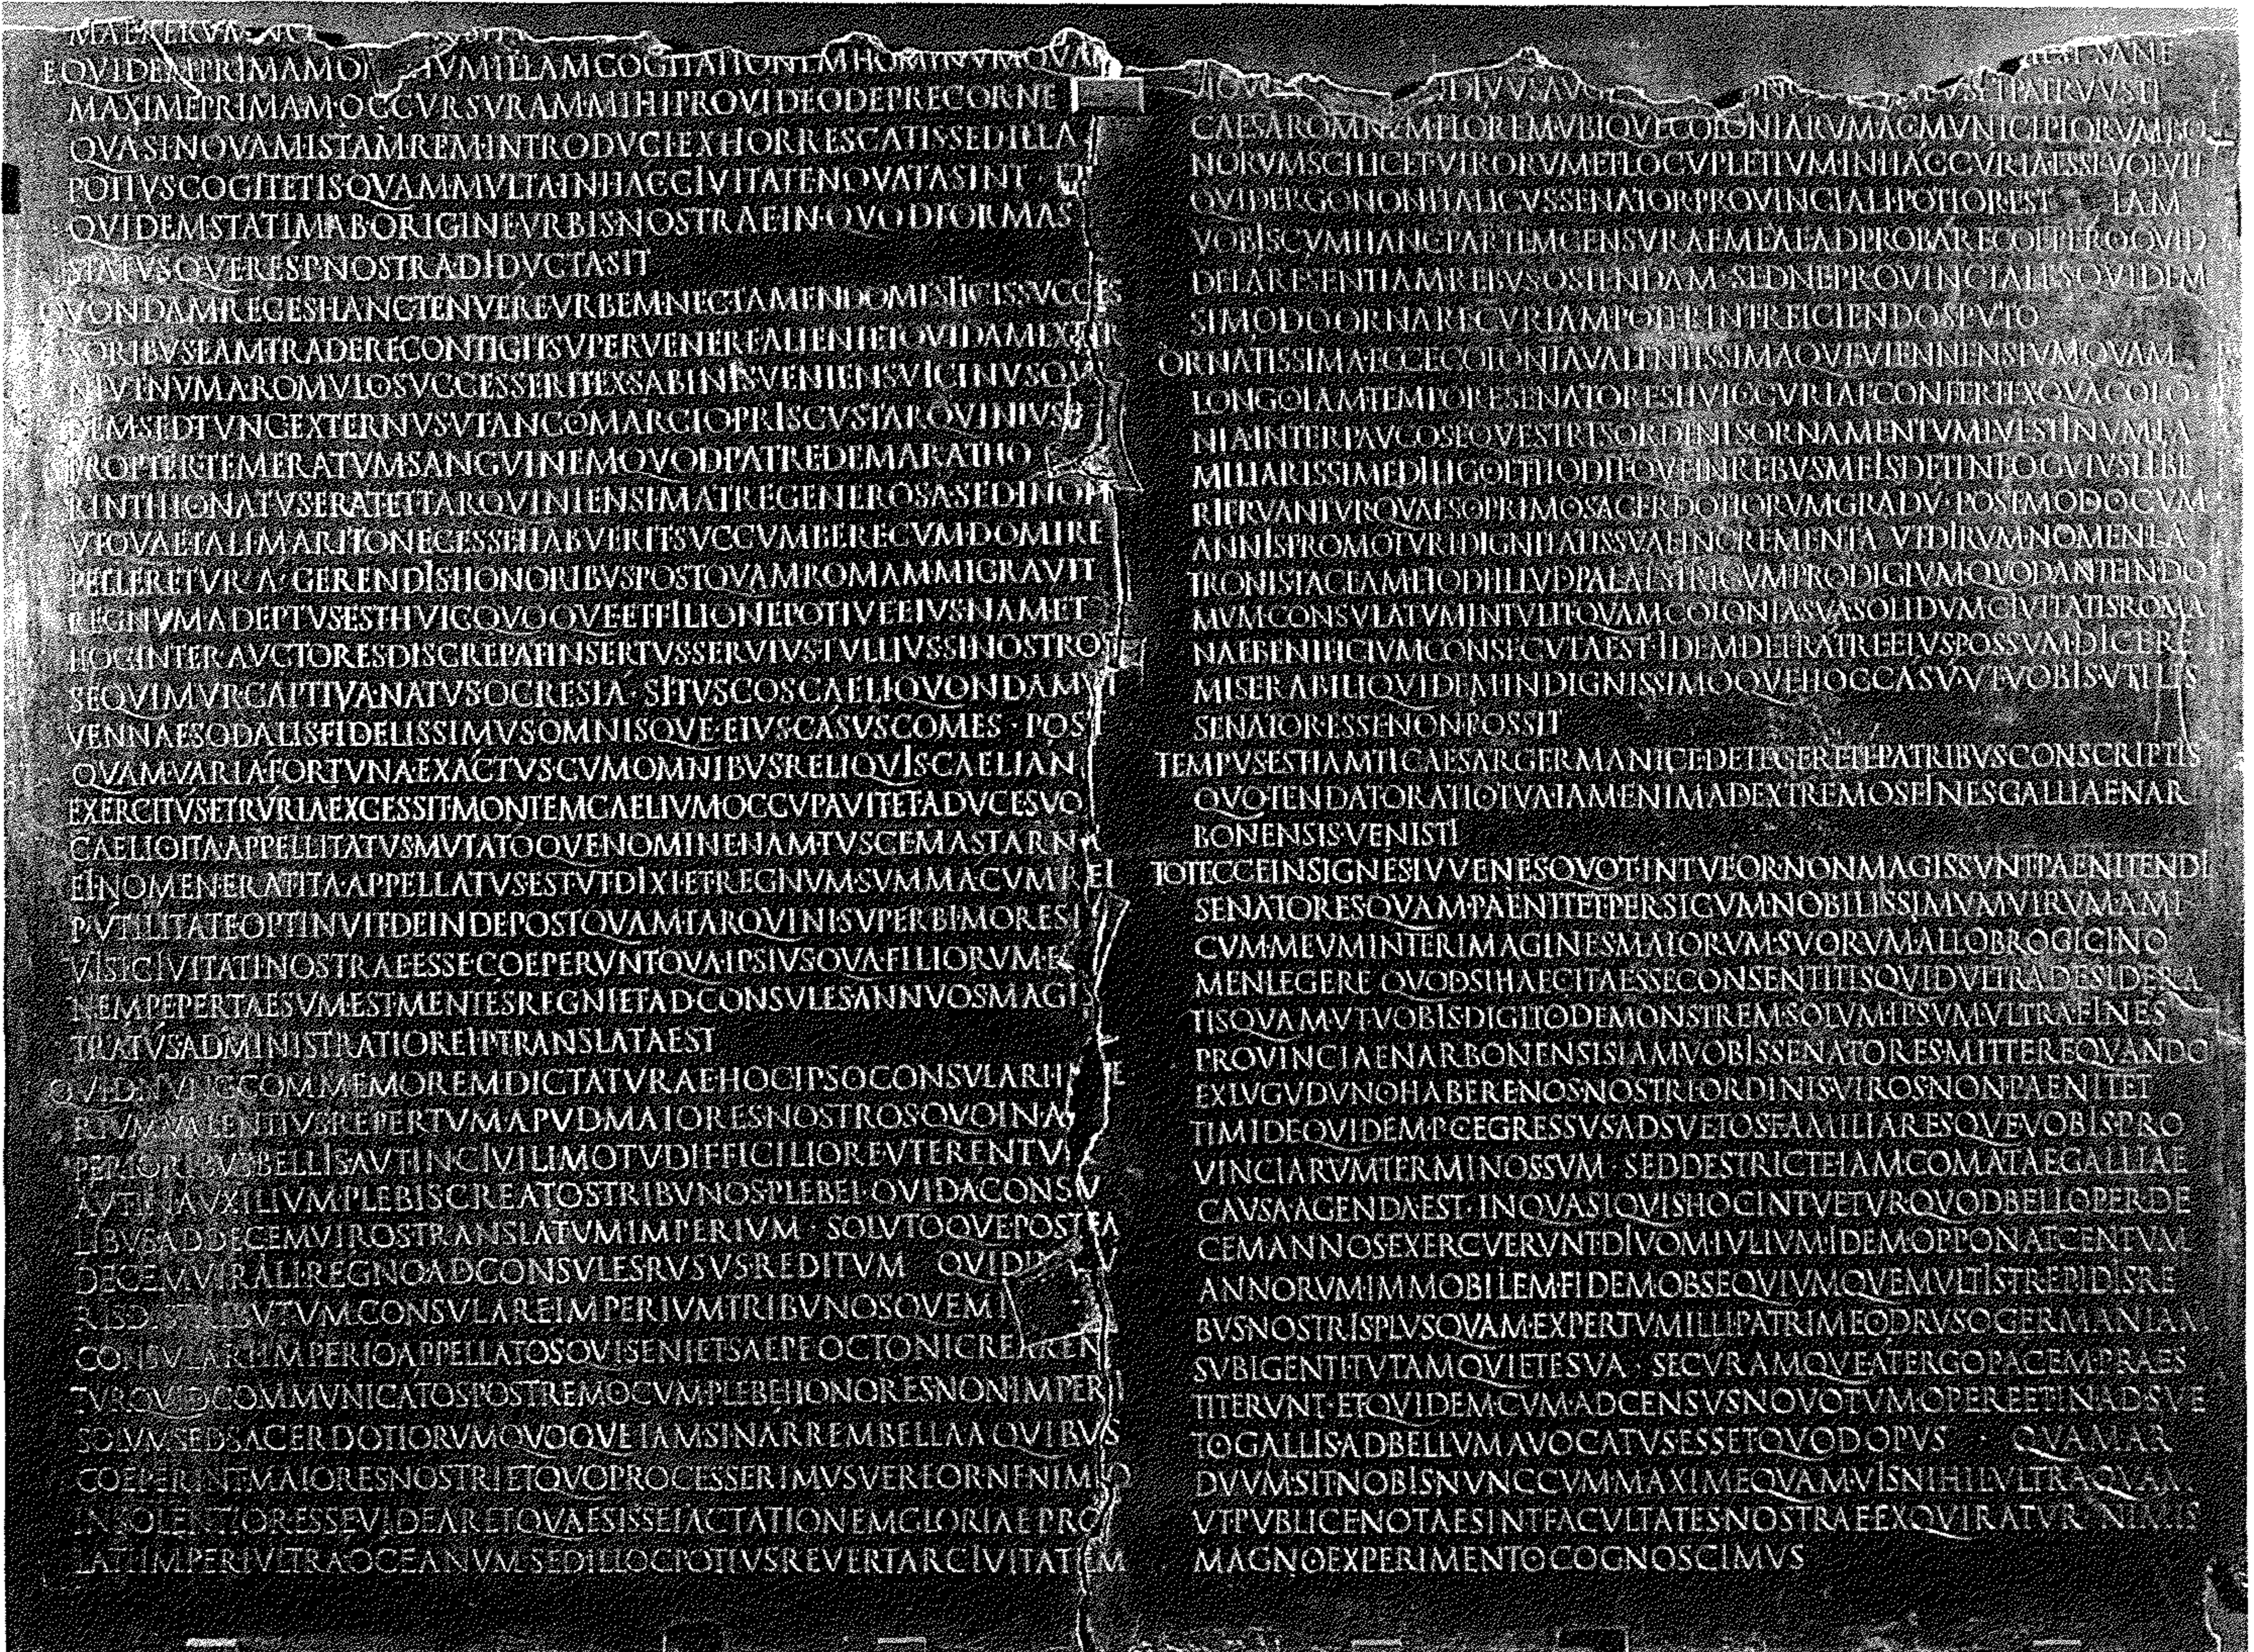 MAE RERVM
EQVIDEM PRIMAM OMNIVM ILLAM COGITATIONEM HOMINVM QVAM
MAXIME PRIMAM OCCVRSVRAM MIHI PROVIDEO DEPRECOR NE
QVASI NOVAM ISTAM REM INTRODVCI EXHORRESCATIS SED ILLA
POTIVS COGITETIS QVAM MVLTA IN HAC CIVITATE NOVATA SINT ET
QVIDEM STATIM AB ORIGINE VRBIS NOSTRAE IN QVOD FORMAS
STATVSQVE RES P NOSTRA DIDVCTA SIT
QVONDAM REGES HANC TENVERE VRBEM NEC TAMEN DOMESTICIS SVCCES
SORIBVS EAM TRADERE CONTIGIT SVPERVENERE ALIENI ET QVIDAM EXTER
NI VT NVMA ROMVLO SVCCESSERIT EX SABINIS VENIENS VICINVS QVI
DEM SED TVNC EXTERNVS VT ANCO MARCIO PRISCVS TARQVINIVS
PROPTER TEMERATVM SANGVINEM QVOD PATRE DEMARATHO
RINTHIO NATVS ERAT ET TARQVINIENSI MATRE GENEROSA SED INOPI
VT QVAE TALI MARITO NECESSE HABVERIT SVCCVMBERE CVM DOMI RE
PELLERETVR A GERENDIS HONORIBVS POSTQVAM ROMAM MIGRAVIT
REGNVM ADEPTVS EST HVIC QVOQVE ET FILIO NEPOTIVE EIVS NAM ET
HOC INTER AVCTORES DISCREPAT INSERTVS SERVIVS TVLLIVS SI NOSTROS
SEQVIMVR CAPTIVA NATVS OCRESIA SI TVSCOS CAELI QVONDAM VI
VENNAE SODALIS FIDELISSIMVS OMNISQVE EIVS CASVS COMES POST
QVAM VARIA FORTVNA EXACTVS CVM OMNIBVS RELIQVIS CAELIANI
EXERCITVS ETRVRIA EXCESSIT MONTEM CAELIVM OCCVPAVIT ET A DVCE SVO
CAELIO ITA APPELLITATVS MVTATOQVE NOMINE NAM TVSCE MASTARNA
EI NOMEN ERAT ITA APPELLATVS EST VT DIXI ET REGNVM SVMMA CVM REI
P VTILITATE OPTINVIT DEINDE POSTQVAM TARQVINI SVPERBI MORES I
VISI CIVITATI NOSTRAE ESSE COEPERVNT QVA IPSIVS QVA FILIORVM E
NEMPE PERTAESVM EST MENTES REGNI ET AD CONSVLES ANNVOS MAGIS
TRATVS ADMINISTRATIO REI P TRANSLATA EST
QVID NVNC COMMEMOREM DICTATVRAE HOC IPSO CONSVLARI IMPE
RIVM VALENTIVS REPERTVM APVD MAIORES NOSTROS QVO IN A
PERIORIBVS BELLIS AVT IN CIVILI MOTV DIFFICILIORE VTERENTVR
AVT IN AVXILIVM PLEBIS CREATOS TRIBVNOS PLEBEI QVID A CONSV
LIBVS AD DECEMVIROS TRANSLATVM IMPERIVM SOLVTOQVE POSTEA
DECEMVIRALI REGNO AD CONSVLES RVSVS REDITVM QVID IN V
RIS DISTRIBVTVM CONSVLARE IMPERIVM TRIBVNOSQVE MI
CONSVLARI IMPERIO APPELLATOS QVI SENI ET SAEPE OCTONI CREAREN
TVR QVID COMMVNICATOS POSTREMO CVM PLEBE HONORES NON IMPERI
SOLVM SED SACERDOTIORVM QVOQVE IAM SI NARREM BELLA A QVIBVS
COEPERINT MAIORES NOSTRI ET QVO PROCESSERIMVS VEREOR NE NIMIO
INSOLENTIOR ESSE VIDEAR ET QVAESISSE IACTATIONEM GLORIAE PRO
LATI IMPERI VLTRA OCEANVM SED ILLOC POTIVS REVERTAR CIVITATEM
EST SANE
NOVO DIVVS AVG NC VS ET PATRVVS TI
CAESAR OMNEM FLOREM VBIQVE COLONIARVM AC MVNICIPIORVM BO
NORVM SCILICET VIRORVM ET LOCVPLETIVM IN HAC CVRIA ESSE VOLVIT
QVID ERGO NON ITALICVS SENATOR PROVINCIALI POTIOR EST IAM
VOBIS CVM HANC PARTEM CENSVRAE MEAE ADPROBARE COEPERO QVID
DE EA RE SENTIAM REBVS OSTENDAM SED NE PROVINCIALES QVIDEM
SI MODO ORNARE CVRIAM POTERINT REICIENDOS PVTO
ORNATISSIMA ECCE COLONIA VALENTISSIMAQVE VIENNENSIVM QVAM
LONGO IAM TEMPORE SENATORES HVIC CVRIAE CONFERT EX QVA COLO
NIA INTER PAVCOS EQVESTRIS ORDINIS ORNAMENTVM L VESTINVM FA
MILIARISSIME DILIGO ET HODIEQVE IN REBVS MEIS DETINEO CVIVS LIBE
RI FRVANTVR QVAESO PRIMO SACERDOTIORVM GRADV POST MODO CVM
ANNIS PROMOTVRI DIGNITATIS SVAE INCREMENTA VT DIRVM NOMEN LA
TRONIS TACEAM ET ODI ILLVD PALAESTRICVM PRODIGIVM QVOD ANTE IN DO
MVM CONSVLATVM INTVLIT QVAM COLONIA SVA SOLIDVM CIVITATIS ROMA
NAE BENIFICIVM CONSECVTA EST IDEM DE FRATRE EIVS POSSVM DICERE
MISERABILI QVIDEM INDIGNISSIMOQVE HOC CASV VT VOBIS VTILIS
SENATOR ESSE NON POSSIT
TEMPVS EST IAM TI CAESAR GERMANICE DETEGERE TE PATRIBVS CONSCRIPTIS
QVO TENDAT ORATIO TVA IAM ENIM AD EXTREMOS FINES GALLIAE NAR
BONENSIS VENISTI
TOT ECCE INSIGNES IVVENES QVOT INTVEOR NON MAGIS SVNT PAENITENDI
SENATORES QVAM PAENITET PERSICVM NOBILISSIMVM VIRVM AMI
CVM MEVM INTER IMAGINES MAIORVM SVORVM ALLOBROGICI NO
MEN LEGERE QVOD SI HAEC ITA ESSE CONSENTITIS QVID VLTRA DESIDERA
TIS QVAM VT VOBIS DIGITO DEMONSTREM SOLVM IPSVM VLTRA FINES
PROVINCIAE NARBONENSIS IAM VOBIS SENATORES MITTERE QVANDO
EX LVGVDVNO HABERE NOS NOSTRI ORDINIS VIROS NON PAENITET
TIMIDE QVIDEM P C EGRESSVS ADSVETOS FAMILIARESQVE VOBIS PRO
VINCIARVM TERMINOS SVM SED DESTRICTE IAM COMATAE GALLIAE
CAVSA AGENDA EST IN QVA SI QVIS HOC INTVETVR QVOD BELLO PER DE
CEM ANNOS EXERCVERVNT DIVOM IVLIVM IDEM OPPONAT CENTVM
ANNORVM IMMOBILEM FIDEM OBSEQVIVMQVE MVLTIS TREPIDIS RE
BVS NOSTRIS PLVS QVAM EXPERTVM ILLI PATRI MEO DRVSO GERMANIAM
SVBIGENTI TVTAM QVIETE SVA SECVRAMQVE A TERGO PACEM PRAES
TITERVNT ET QVIDEM CVM AD CENSVS NOVO TVM OPERE ET INADSVE
TO GALLIS AD BELLVM AVOCATVS ESSET QVOD OPVS QVAM AR
DVVM SIT NOBIS NVNC CVM MAXIME QVAMVIS NIHIL VLTRA QVAM
VT PVBLICE NOTAE SINT FACVLTATES NOSTRAE EXQVIRATVR NIMIS
MAGNO EXPERIMENTO COGNOSCIMVS